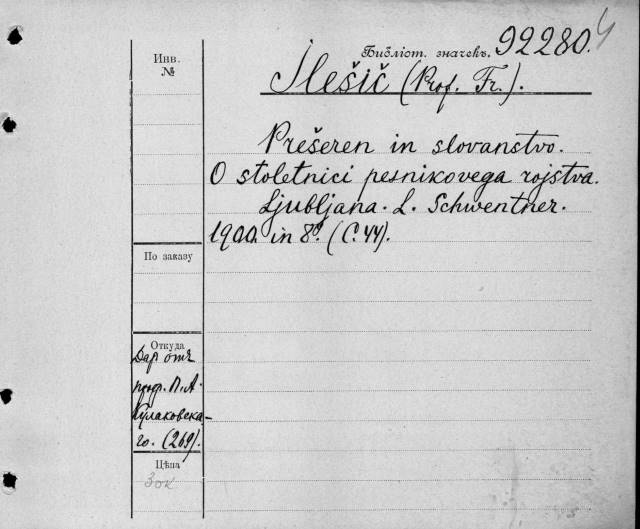 Библіот. значекъ. 92280
Инв.
№
Ilešič (Prof. Fr.).
Prešeren in slovanstvo.
O stoletnici pesnikovega rojstva.
Ljubljana. L. Schwentner.
1900. in 8º. (С. 44).
По заказу
Откуда
Дар отъ
проф. П. А.
Кулаковска-
го. (269).
Цѣна
30к